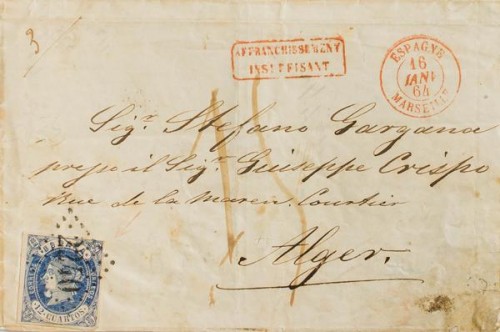 3
AFFRANCHISSEMENT
INSUFFISANT
ESPAGNE
16
JANV
64
MARSEILLE
15
Sigr. Stefano Gargana
presso il Sigr. Guiseppe Crispo
Rue de la Marin Courtier
Alger.
12 CUARTOS